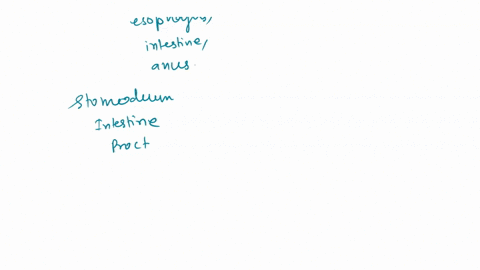 esophagus,
intestine,
anus
Stomodeum
Intestine
Proct